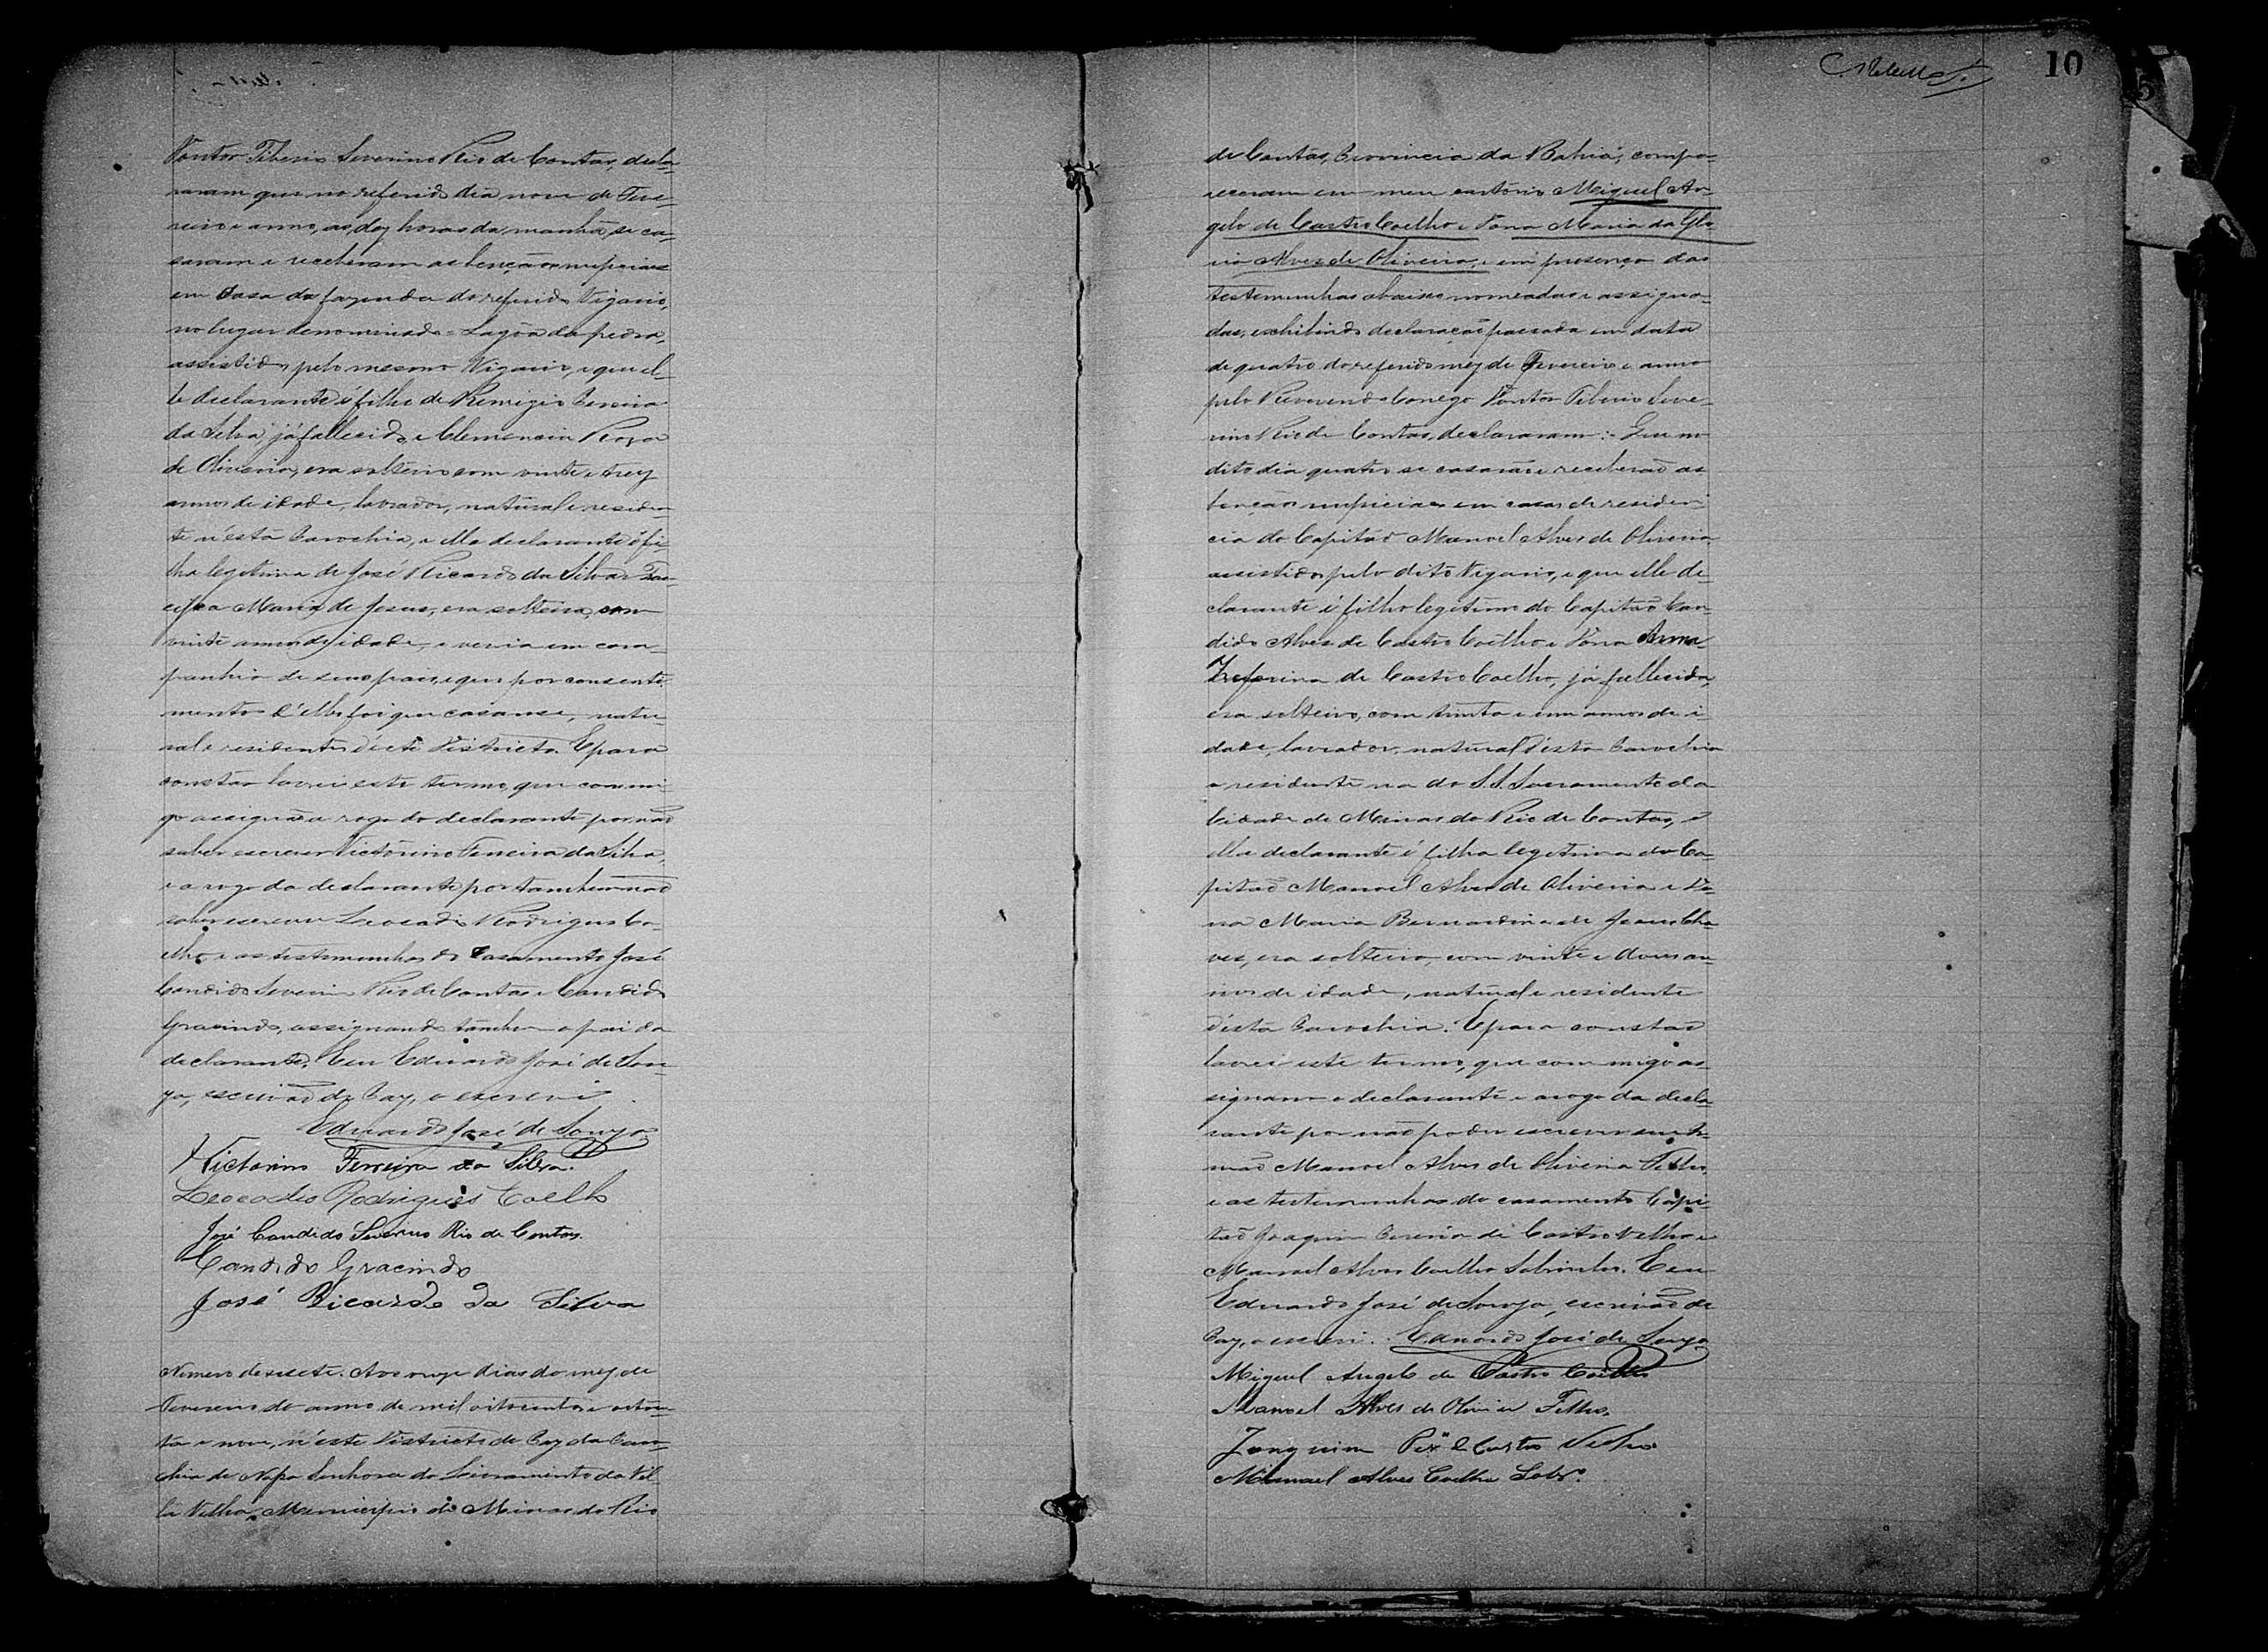 Doutor Tiberio Severino Rio de Contas, decla-
raram que no referido dia nove de Feve-
reiro e anno, as dez horas da manhã, se ca-
saram e receberam as bençãos nupciaes
em Casa da fazenda do referido Vigario,
no lugar denominado = Lagôa da pedra,
assistidos pelo mesmo Vigario, e que el-
le declarante é filho de Remigio Pereira
da Silva, já fallecido, e Clemencia Rosa
de Oliveira, era solteiro com vinte e trez
annos de idade, lavrador, natural e residen-
te n'esta Parochia, e ella declarante é fi-
lha legitima de José Ricardo da Silva e
Maria de Jesus, era solteira, com
vinte annos de idade, e vevia em com-
panhia de seus pais, e que por consenti-
mento d'elles foi que casou-se, natu-
ral e residente d'este Districto. E para
constar lavrei este termo, que commi-
go assignão a rogo do declarante por não
saber escrever Victorino Ferreira da Silva,
e a rogo da declarante por tambem não
saber escrever Leocadio Rodrigues Co-
elho e as testemunhas do Casamento José
Candido Severino Rio de Contas e Candido
Gracindo, assignando tambem o pai da
declarante. Eu Eduardo José de Sou-
za, escrivão de Paz, o escrevi.
Eduardo José de Souza
Victorino Ferreira da Silva.
Leocadio Rodrigues Coelho
José Candido Severino Rio de Contas.
Candido Gracindo
José Ricardo da Silva
Numero desesete. Aos onze dias do mez de
Fevereiro do anno de mil oitocentos e oiten-
ta e nove, n'este Districto de Paz da Paro-
chia de Nossa Senhora do Livramento da Vil-
la Velha, Municipio de Minas do Rio
10
de Contas, Provincia da Bahia, compa-
receram em meu cartorio Miguel An-
gelo de Castro Coelho e Dona Maria da Glo-
ria Alves de Oliveira, e em presença das
testemunhas abaixo nomeadas e assigna-
das, exhibindo declaração passada em data
de quatro do referido mez de Fevereiro e anno
pelo Reverendo Conego Doutor Tiberio Seve-
rino Rio de Contas, declararam: - Que no
dito dia quatro se casarão e receberão as
bençãos nupciaes em casa de residen-
cia do Capitão Manoel Alves de Oliveira
assistidos pelo dito Vigario, e que elle de-
clarante é filho legitimo do Capitão Can-
dido Alves de Castro Coelho e Dona Anna
Zeferina de Castro Coelho, já fallecida,
era solteiro, com trinta e um annos de i-
dade, lavrador, natural d'esta Parochia
e residente na do S.S. Sacramento da
Cidade de Minas do Rio de Contas, e
ella declarante é filha legitima do Ca-
pitão Manoel Alves de Oliveira e Do-
na Maria Bernardina de Jesus Cha-
ves, era solteira, com vinte e dous an-
nos de idade, natural e residente
d'esta Parochia. E para constar
lavrei este termo, que com migo as-
signam o declarante e a rogo da decla-
rante por não poder escrever seu ir-
mão Manoel Alves de Oliveira Filho
e as testemunhas do casamento Capi-
tão Joaquim Pereira de Castro Velho e
Manoel Alves Coelho Sobrinho. Eu
Eduardo José de Souza, escrivão de
Paz, o escrevi. Eduardo José de Souza
Miguel Angelo de Castro Coelho
Manoel Alves de Oliveira Filho.
Joaquim Perª de Castro Velho
Manuel Alves Coelho Sobrº.